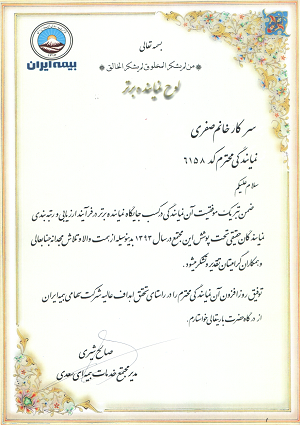 بسمه تعالی
من لم یشکر المخلوق لم یشکر الخالق
بیمه ایران
لوح نماینده برتر
سرکار خانم صفری
نمایندگی محترم کد ۶۱۵۸
سلام علیکم
ضمن تبریک موفقیت آن نمایندگی در کسب جایگاه نماینده برتر در فرآیند ارزیابی و رتبه بندی
نمایندگان حقیقی تحت پوشش این مجتمع در سال ۱۳۹۳ بدینوسیله از همت والا و تلاش مجدانه جنابعالی
و همکاران گرامیتان تقدیر و تشکر میشود.
توفیق روزافزون آن نمایندگی محترم را در راستای تحقق اهداف عالیه شرکت سهامی بیمه ایران
از درگاه حضرت باریتعالی خواستارم.
صالح شیری
مدیر مجتمع خدمات بیمه ای سعدی